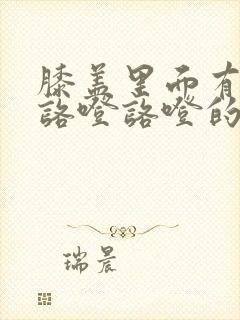 膝盖里面有
咯噔咯噔的
瑞晨